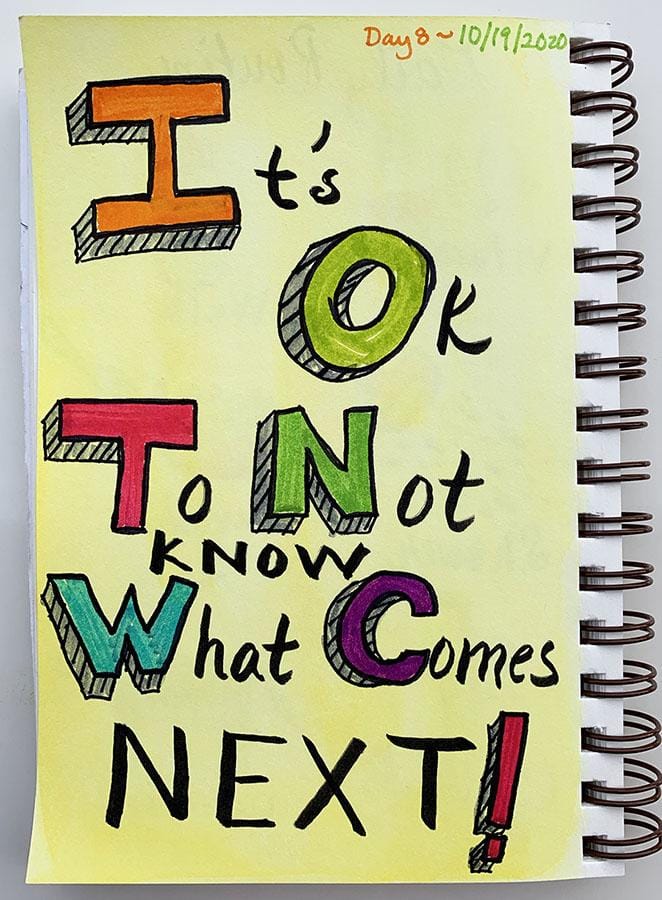 Day 8 ~ 10/19/2020
It's
OK
To Not
KNOW
What Comes
NEXT!